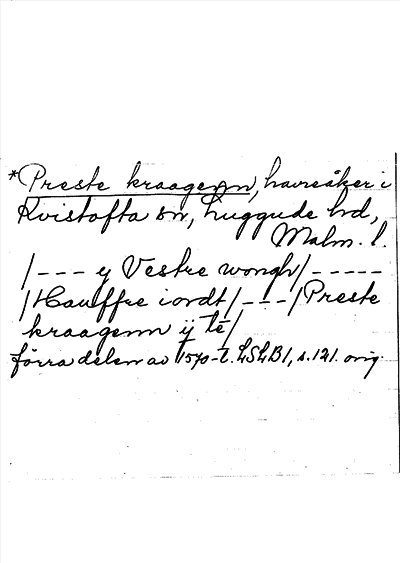 *Preste kraagenn, havreåker i
Kvistofta sn, Luggude hd,
Malm. l.
/--- y Vestre wongh/-----
/Hauffre iordt/---/Preste
kraagenn ÿ té/
förra delen av 1570-t. LSLB1, s. 121. orig.